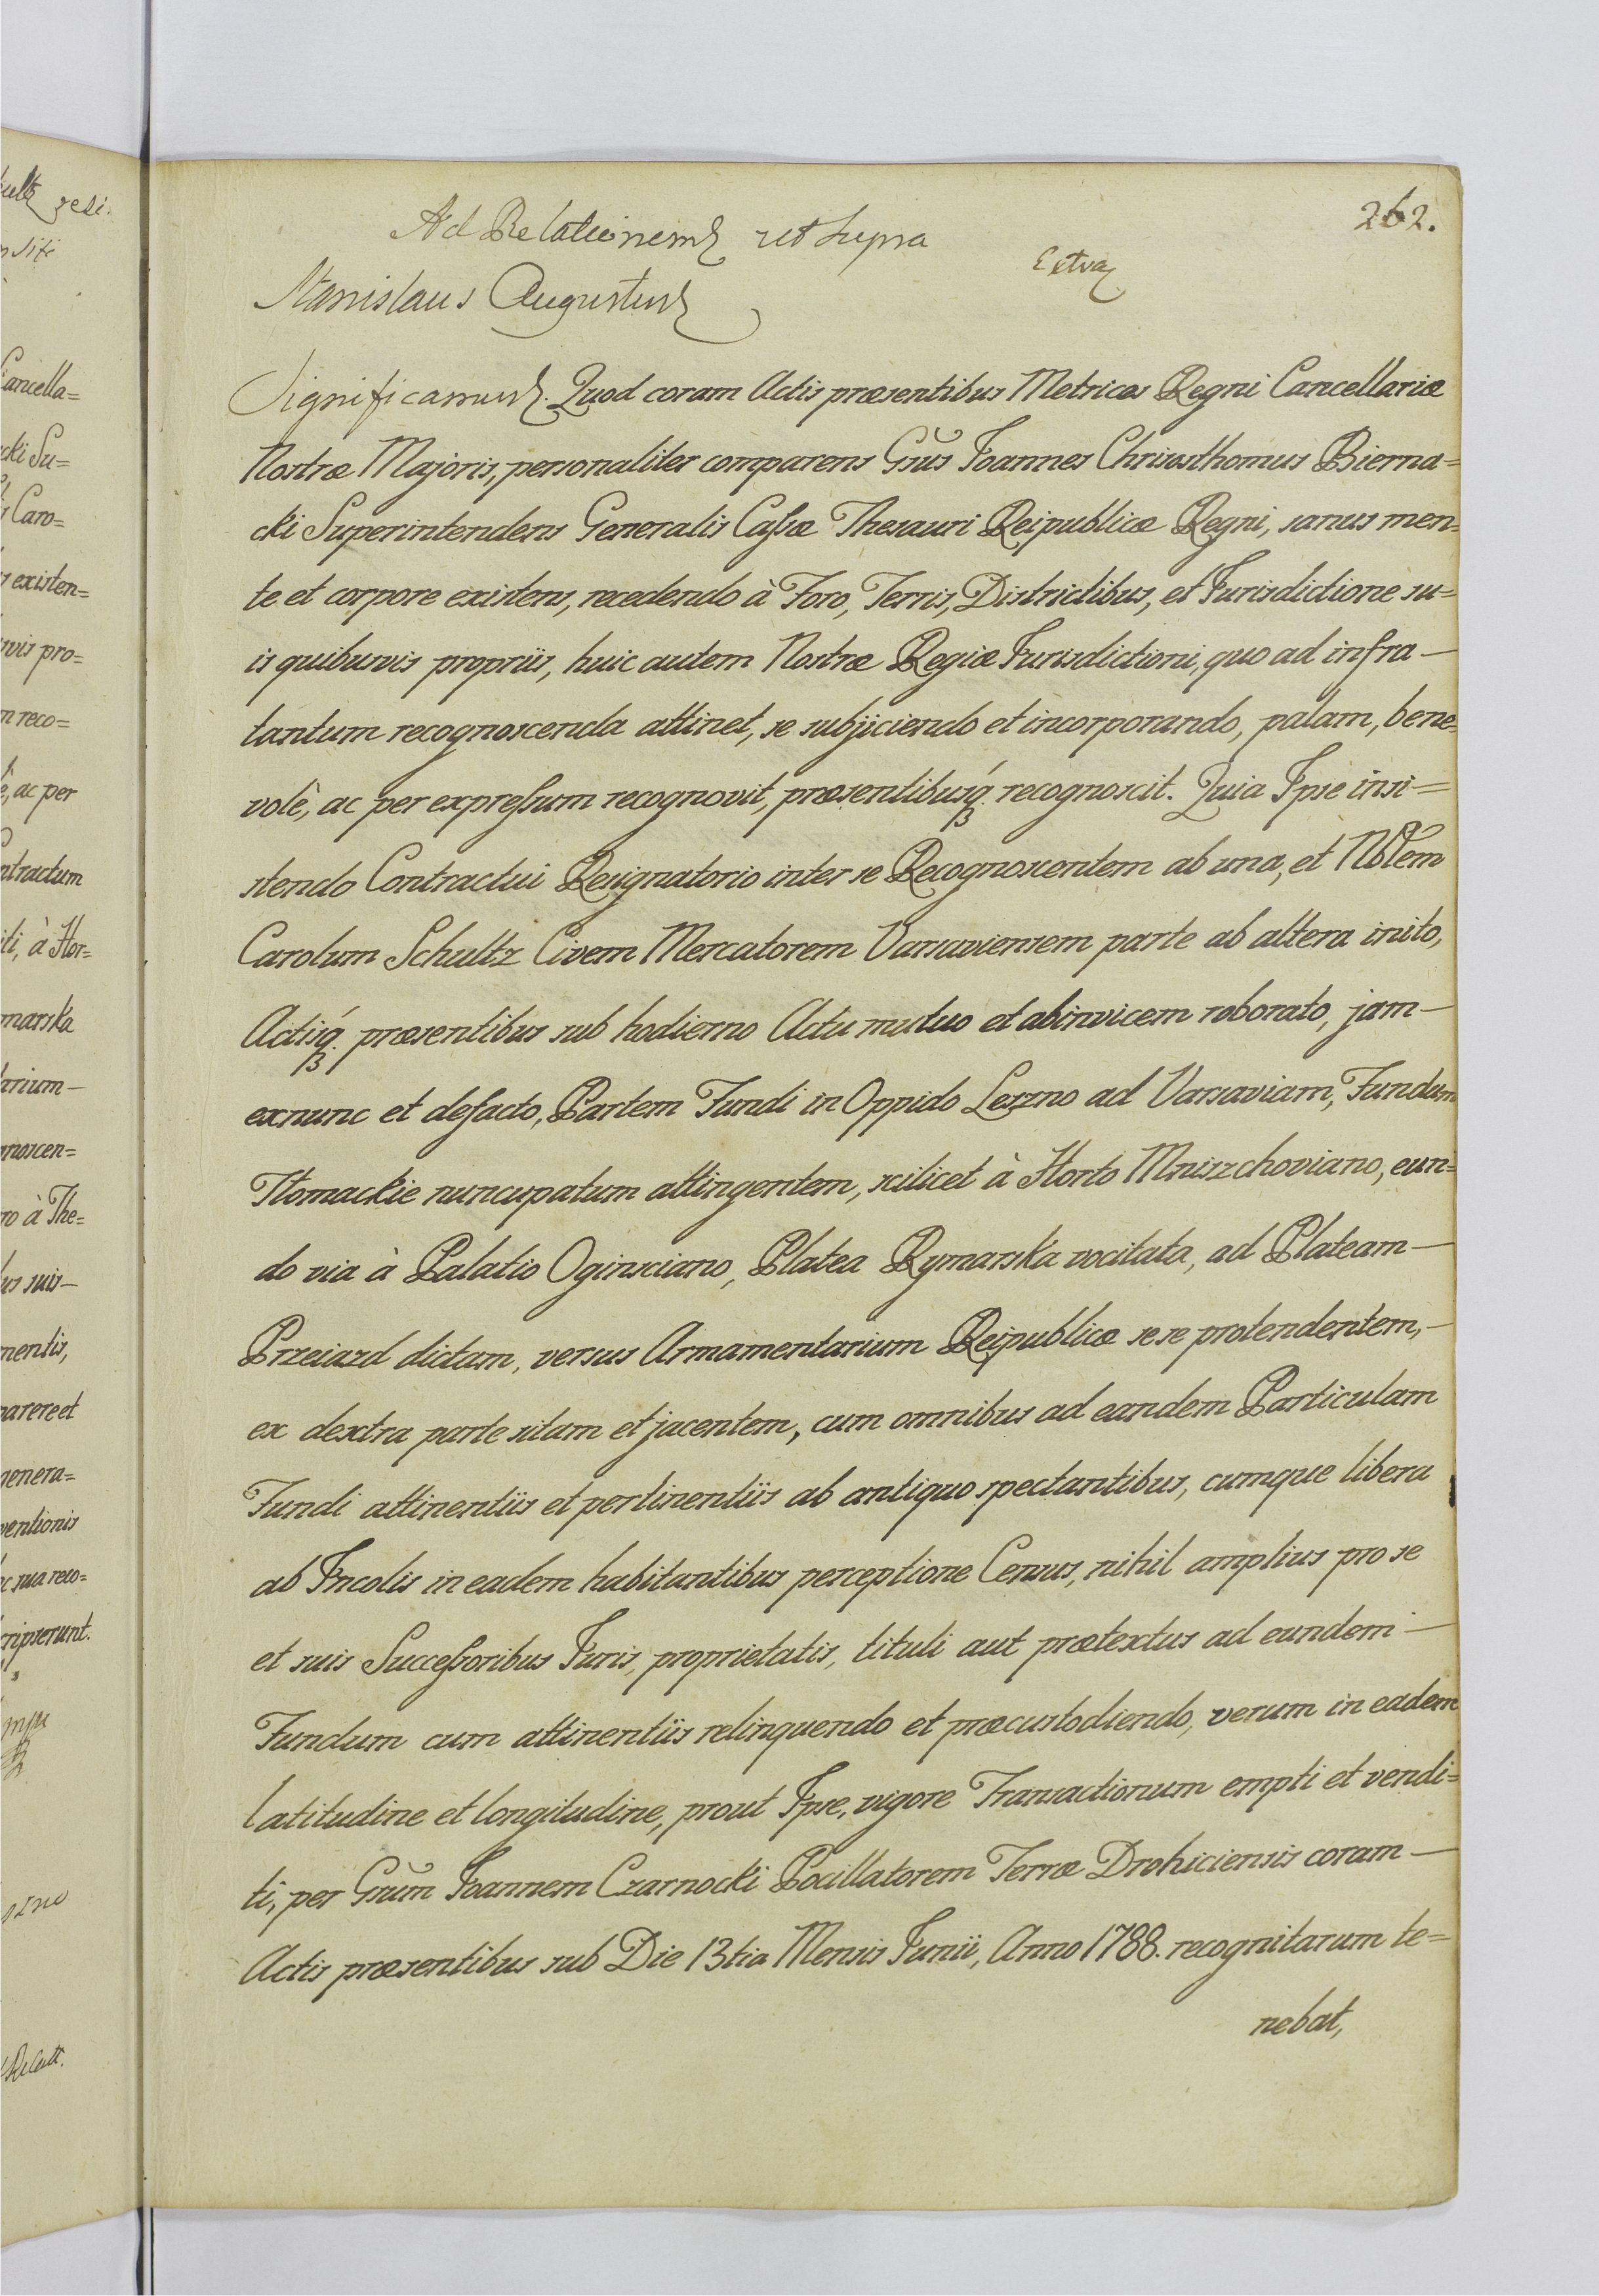 262.
Ad Relationem ut supra
Extra
Stanislaus Augustus
Significamus. Quod coram Actis præsentibus Metrices Regni Cancellariæ
Nostræ Majoris, personaliter comparens Gsus Joannes Chrisosthomus Bierna=
cki Superintendens Generalis Cassæ Thesauri Reipublicæ Regni, sanus men=
te et corpore existens, recedendo à Foro, Terris, Districtibus, et Jurisdictione su=
is quibusvis propriis, huic autem Nostræ Regiæ Jurisdictioni, quo ad infra—
tantum recognoscenda attinet, se subjiciendo et incorporando, palam, bene=
volè, ac per expressum recognovit, præsentibusq́ꝫ recognoscit. Quia Ipse insi=
stendo Contractui Resignatorio inter se Recognoscentem ab una, et Nobĩlem
Carolum Schultz Civem Mercatorem Varsaviensem parte ab altera inito,
Actisq́ꝫ præsentibus sub hodierno Actu mutuo et abinvicem roborato, jam—
exnunc et defacto, Partem Fundi in Oppido Leszno ad Varsaviam, Fundum
Tłomackie nuncupatum attingentem, scilicet à Horto Mniszchoviano, eun=
do via à Palatio Oginsciano, Platea Rymarska vocitata, ad Plateam—
Przeiazd dictam, versus Armamentarium Reipublicæ sese protendentem,—
ex dextra parte sitam et jacentem, cum omnibus ad eandem Particulam
Fundi attinentiis et pertinentiis ab antiquo spectantibus, cumque libera
ab Incolis in eadem habitantibus perceptione Census, nihil amplius pro se
et suis Successoribus Juris, proprietatis, tituli aut prætextus ad eundem—
Fundum cum attinentiis relinquendo et præcustodiendo, verum in eadem
latitudine et longitudine, prout Ipse, vigore Transactionum empti et vendi=
ti, per Gsum Joannem Czarnocki Pocillatorem Terræ Drohiciensis coram—
Actis præsentibus sub Die 13tia Mensis Junii, Anno 1788. recognitarum te=
nebat,